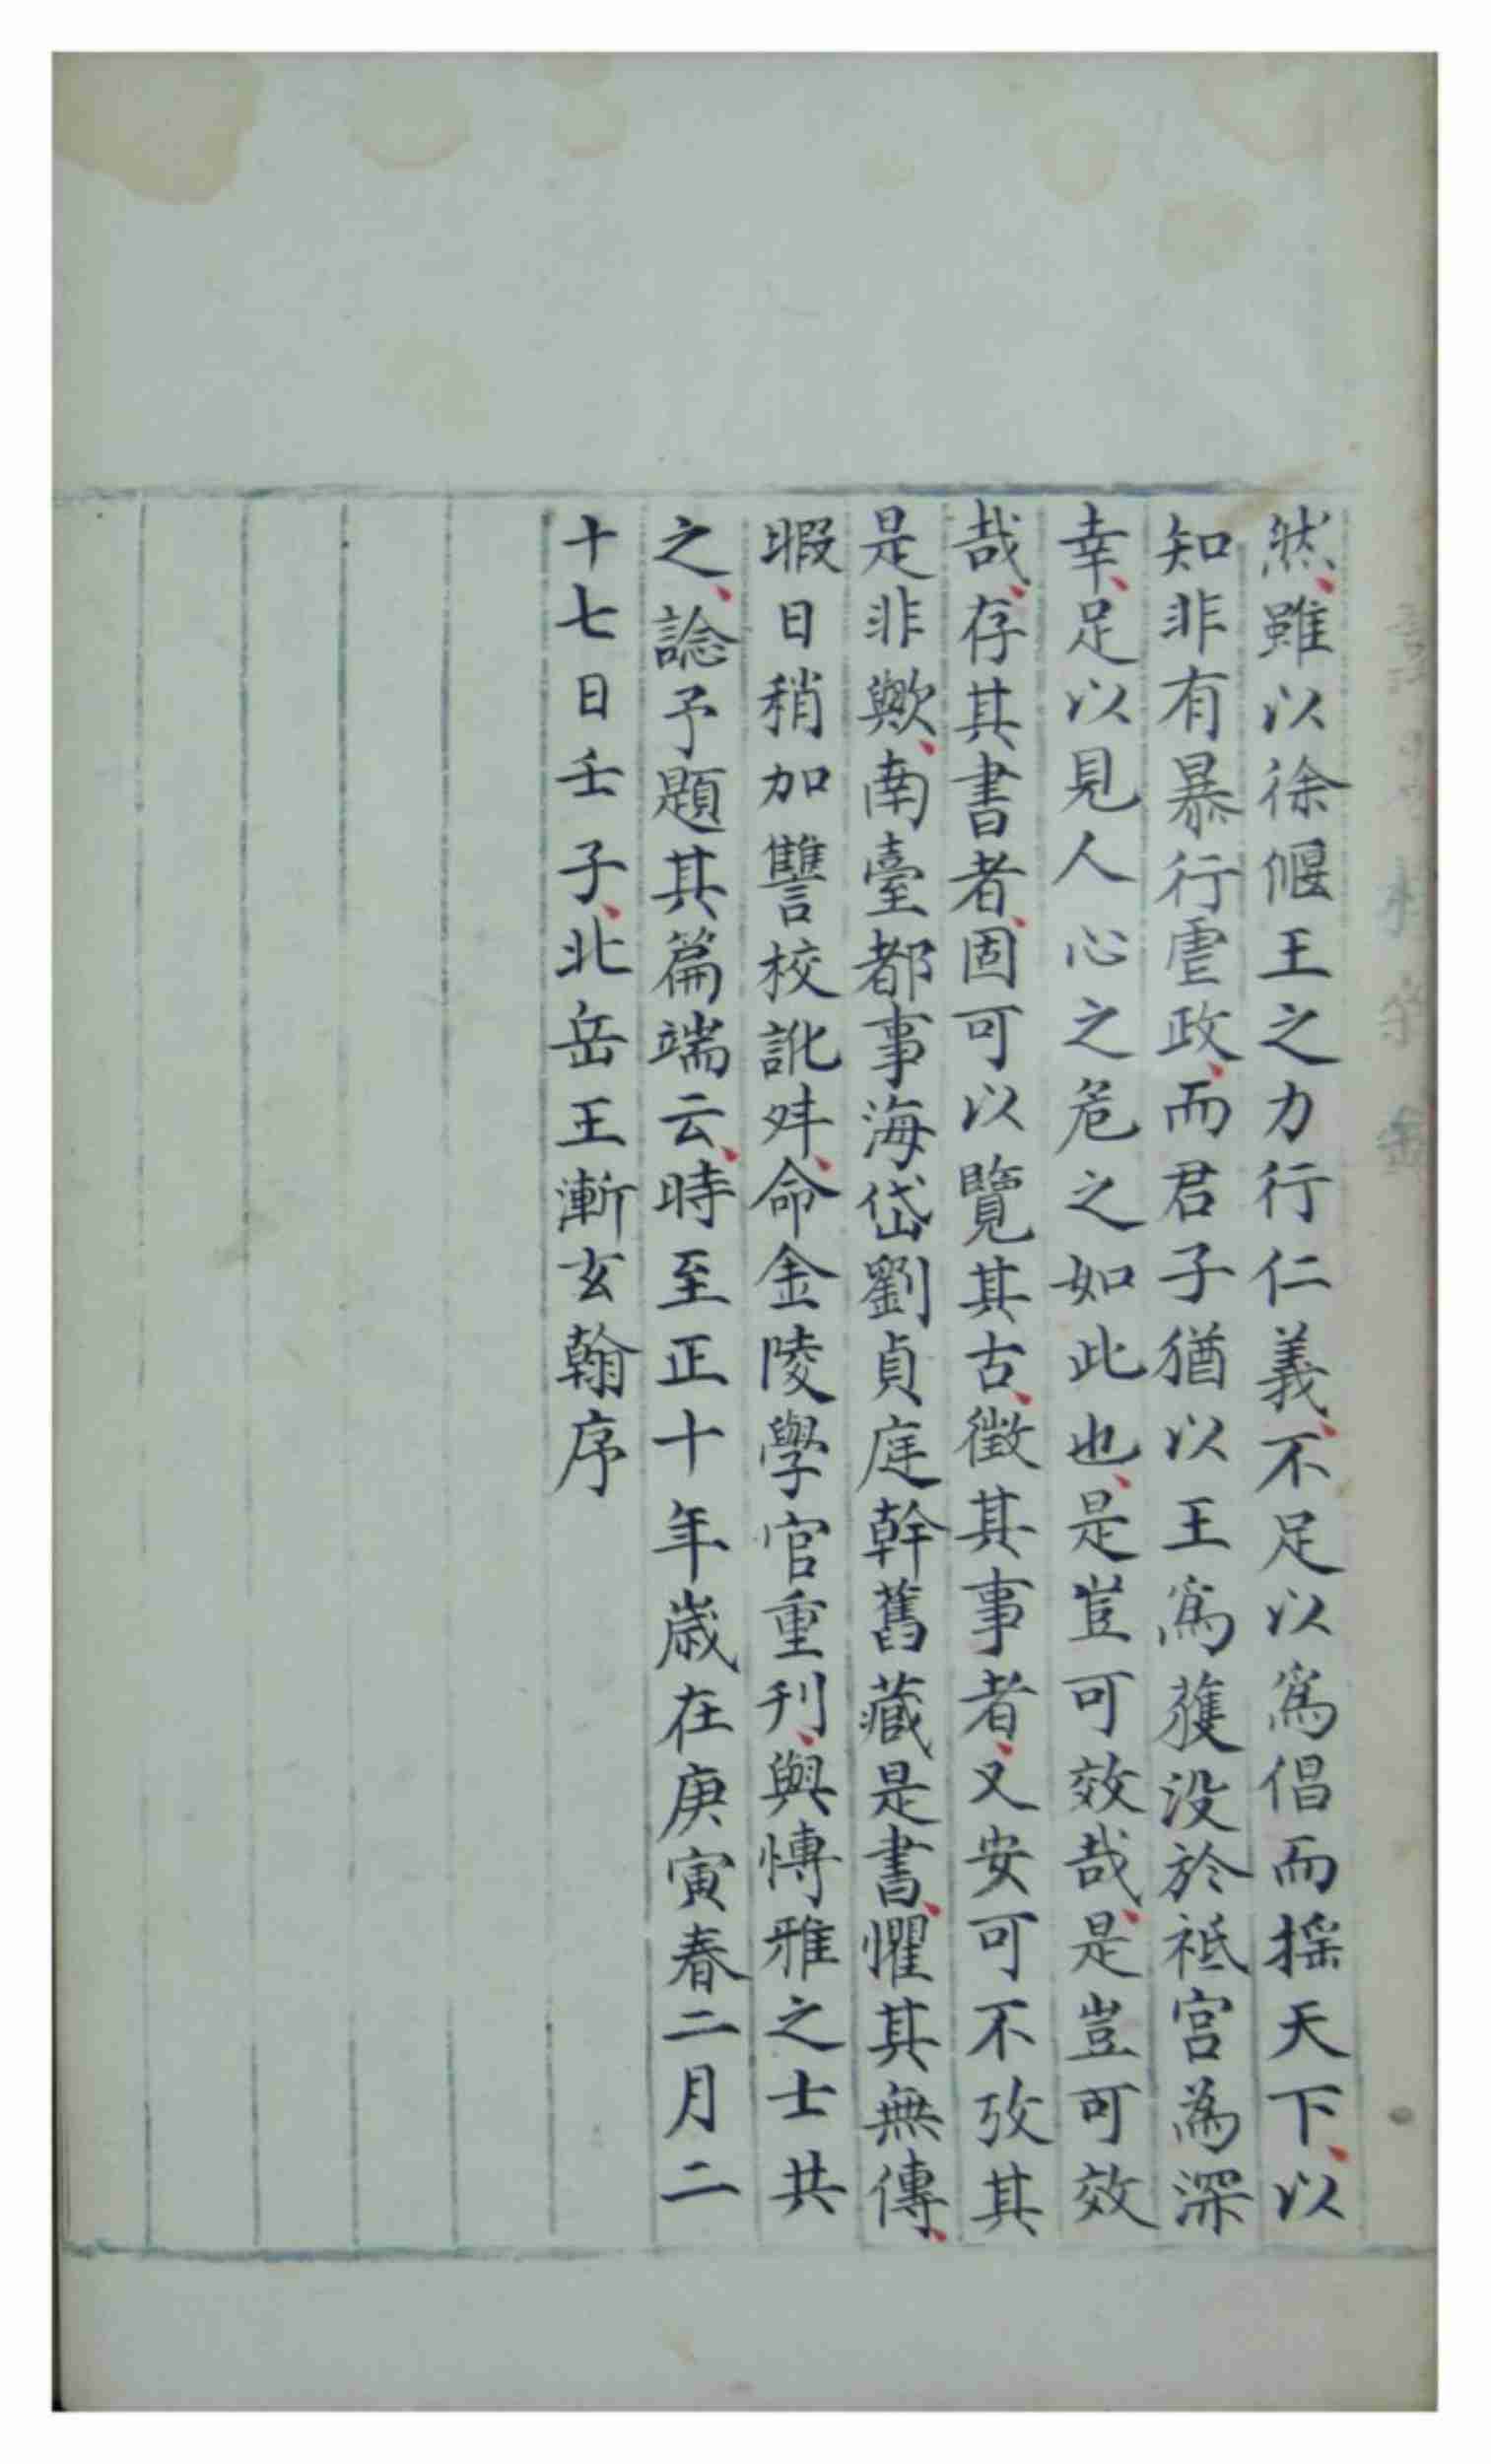 然雖以徐偃王之力行仁義不足以爲倡而揺天下以
知非有暴行虐政而君子猶以王爲獲没於祗宫為深
幸足以見人心之危之如此也是豈可效哉是豈可效
哉存其書者固可以覽其古徵其事者又安可不攷其
是非歟南臺都事海岱劉貞庭幹舊藏是書懼其無傳
暇日稍加讐校訛舛命金陵學官重刊與愽雅之士共
之諗予題其篇端云時至正十年歳在庚寅春二月二
十七日壬子北岳王漸玄翰序